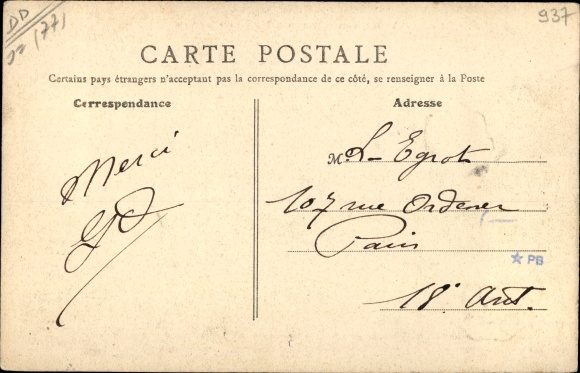 DD
(77)
937
CARTE POSTALE
Certains pays étrangers n'acceptant pas la correspondance de ce côté, se renseigner à la Poste
Correspondance
Adresse
Merci
M L. Egrot
107 rue Ordener
Paris
18e Arrt.
★ PB